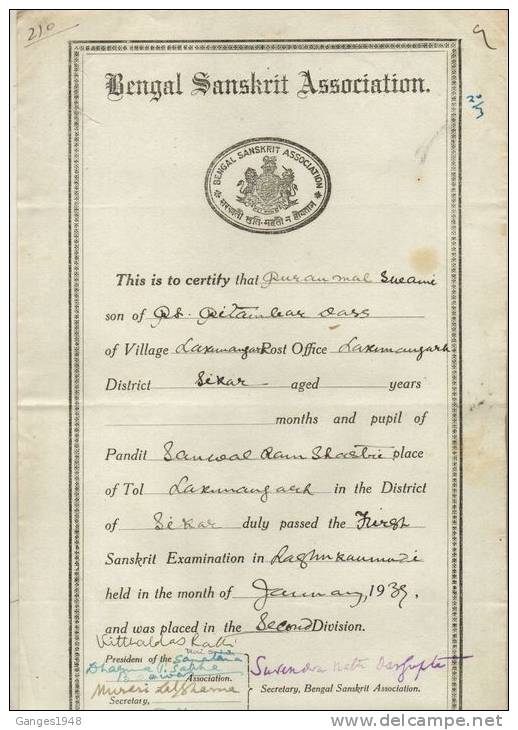 210
9
Bengal Sanskrit Association.
20/3
BENGAL SANSKRIT ASSOCIATION
This is to certify that Puranmal Swami
son of Pt. Pitambar Dass
of Village Laxmangarh Post Office Laxmangarh
District Sikar aged years
months and pupil of
Pandit Sanwal Ram Shastri place
of Tol Laxmangarh in the District
of Sikar duly passed the First
Sanskrit Examination in Laghukaumudi
held in the month of January, 1939.
and was placed in the Second Division.
Vitthaldas Rathi
President of the Sanatana
Dharma Sabha
Association.
Murari Lal Sharma
Secretary,
Surendra Nath Dasgupta
Secretary, Bengal Sanskrit Association.
Ganges1948
delcampe.net